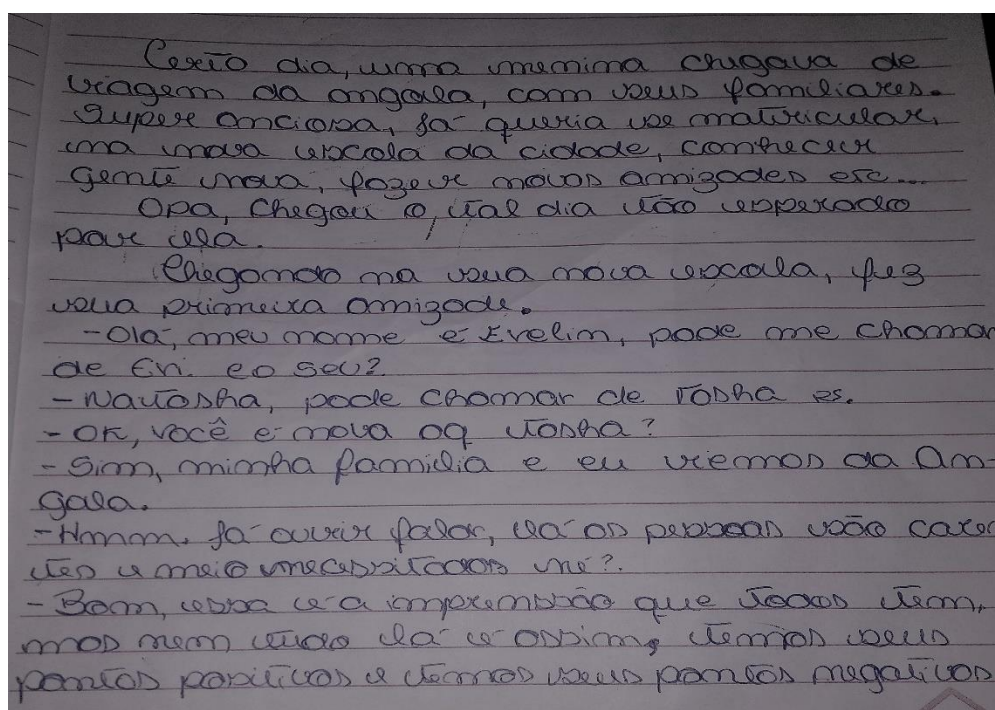 Certo dia, uma menina chegava de
viagem da angola, com seus familiares.
Super anciosa, já queria se matricular,
na nova escola da cidade, conhecer
gente nova, fazer novas amizades etc...
Opa, chegou o, tal dia tão esperado
por ela.
Chegando na sua nova escola, fez
sua primeira amizade.
-Olá, meu nome é Evelim, pode me chamar
de Evi. e o seu?
-Natasha, pode chamar de Tasha
-OK, você é nova aq tasha?
-Sim, minha família e eu viemos da An-
gola.
-Hmmm. Já ouvir falar, lá as pessoas são caren
tes e meio necessitados né?.
-Bom, essa é a impressão que todos tem,
mas nem tudo lá é assim, temos seus
pontos positivos e temos seus pontos negativos